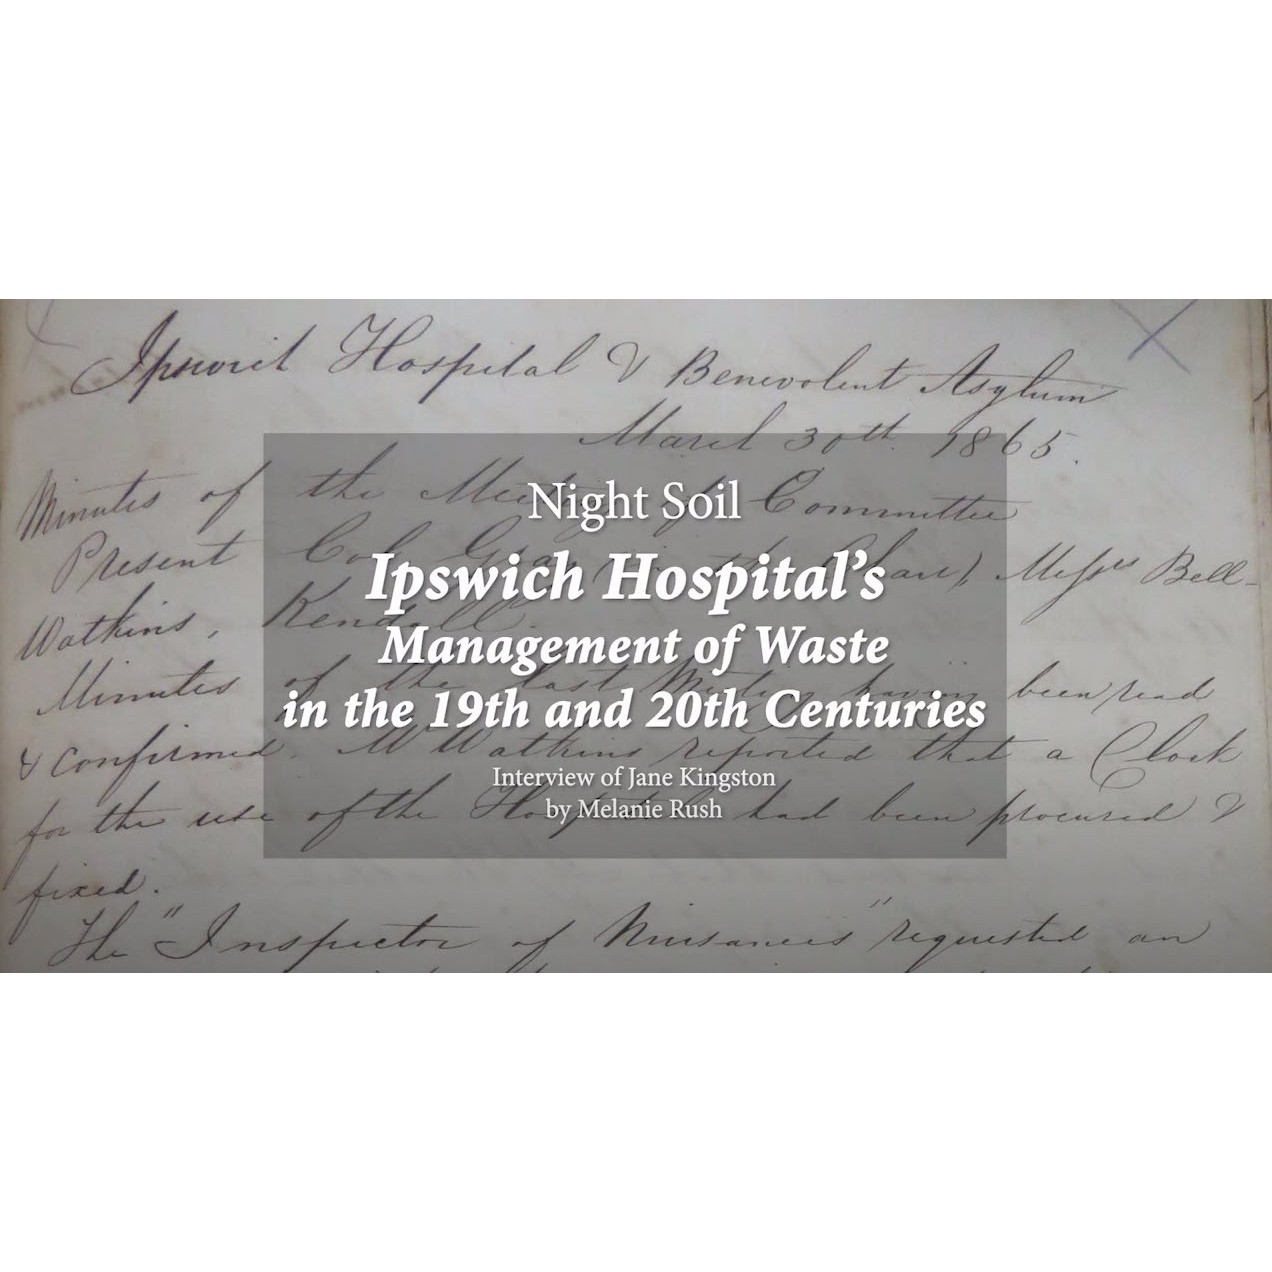 Ipswich Hospital & Benevolent Asylum
March 30th 1865.
Minutes of the Meeting of Committee
Present Col. Gray (in the Chair) Messrs Bell-
Watkins, Kendall.
Minutes of the last Meeting having been read
& confirmed. Mr Watkins reported that a Clock
for the use of the Hospital had been procured &
fixed.
The "Inspector of Nuisances" requested an
Night Soil
Ipswich Hospital’s
Management of Waste
in the 19th and 20th Centuries
Interview of Jane Kingston
by Melanie Rush